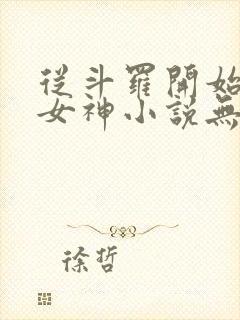 從斗羅開始
女神小說無
徐哲